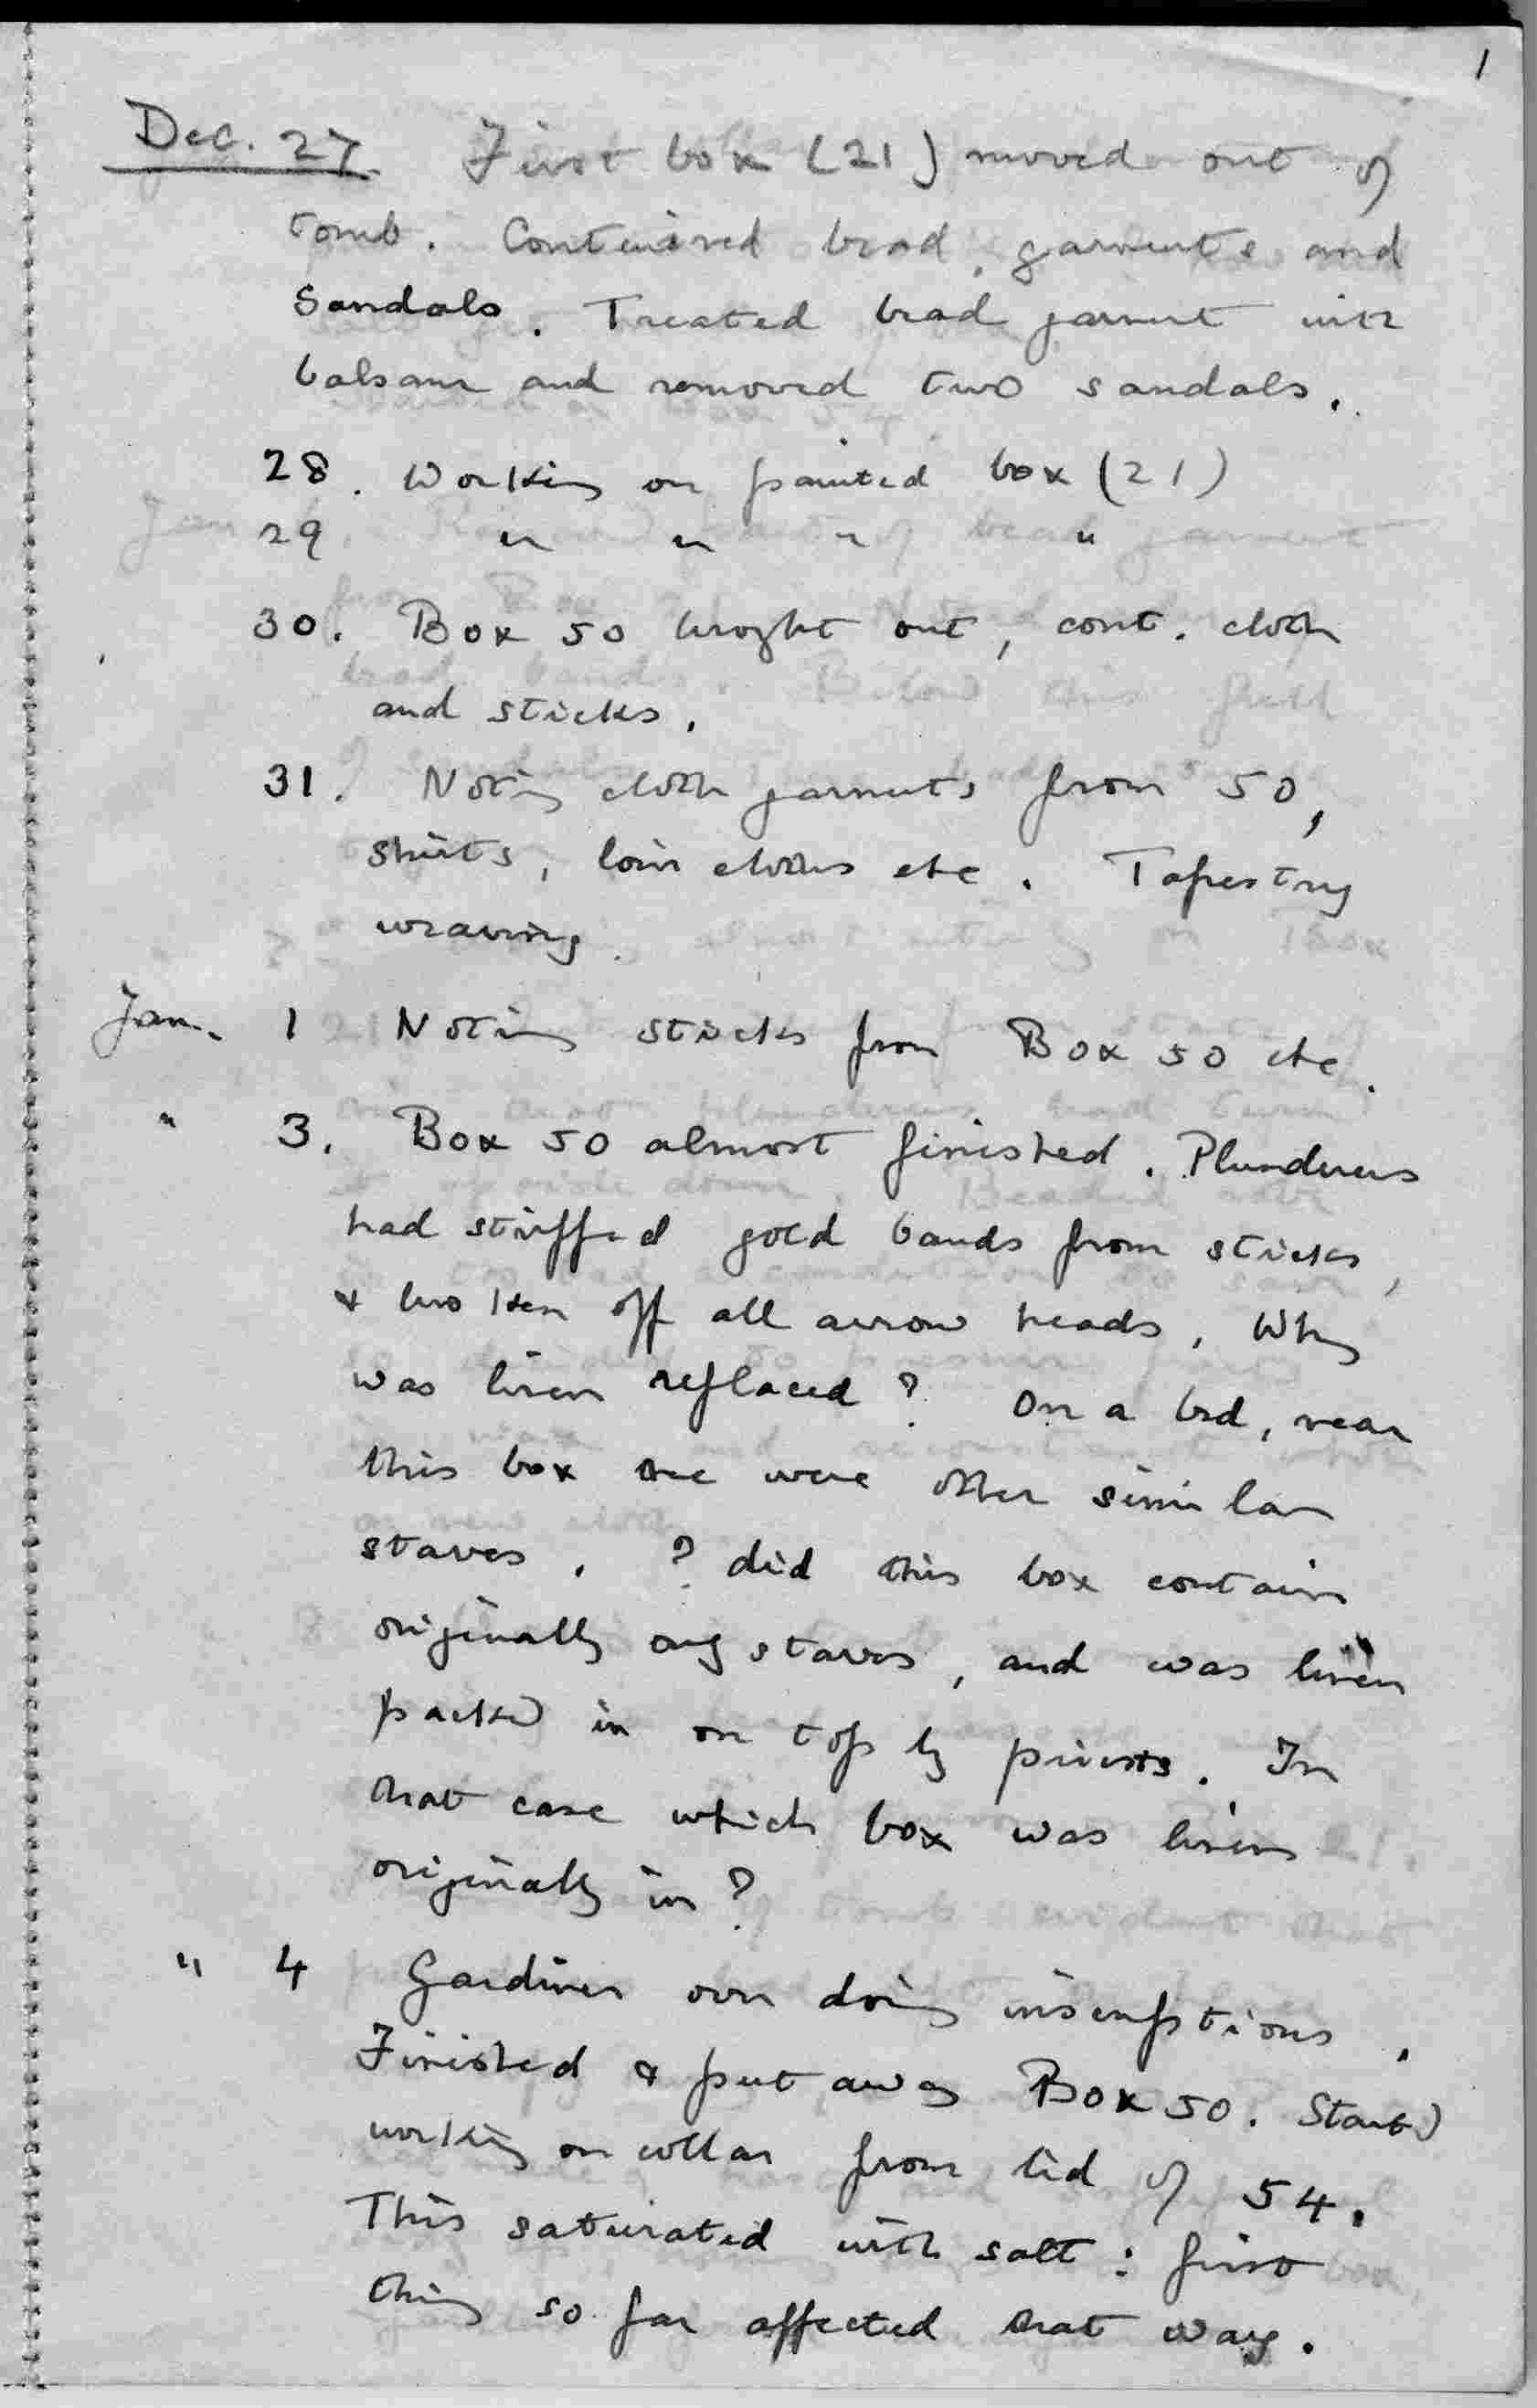 1
Dec. 27 First box (21) moved out of
tomb. Contained bead garments and
sandals. Treated bead garment with
balsam and removed two sandals.
28. Working on painted box (21)
29 " " " "
30. Box 50 brought out, cont. cloth
and sticks.
31. Noting cloth garments from 50,
shirts, loin cloths etc. Tapestry
weaving.
Jan. 1 Noting sticks from Box 50 etc.
" 3. Box 50 almost finished. Plunderers
had stripped gold bands from sticks,
& broken off all arrow heads. Why
was linen replaced? On a bed, near
this box there were other similar
staves. ? did this box contain
originally only staves, and was linen
packed in on top by priests. In
that case which box was linen
originally in?
" 4 Gardiner over doing inscriptions.
Finished & put away Box 50. Started
working on collar from lid of 54.
This saturated with salt: first
thing so far affected that way.